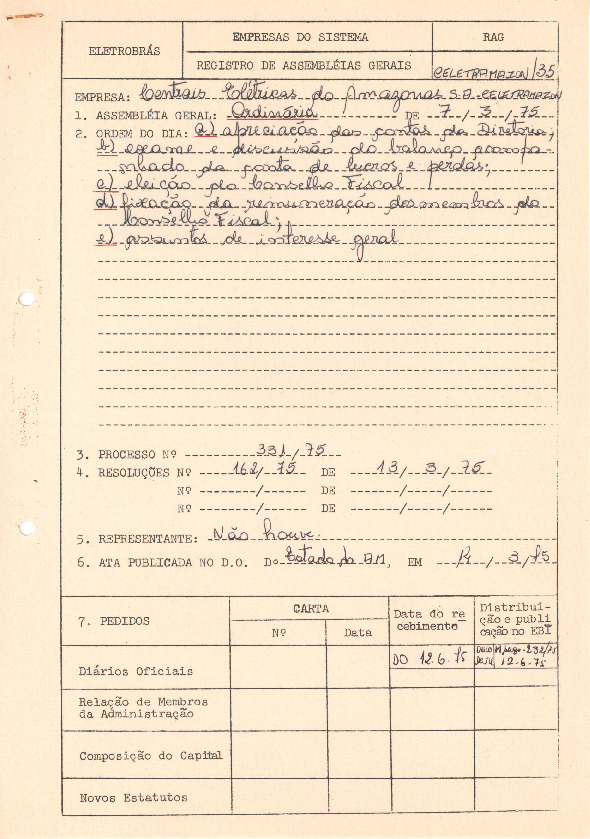 ELETROBRÁS
EMPRESAS DO SISTEMA
RAG
REGISTRO DE ASSEMBLÉIAS GERAIS
CELETRAMAZON/35
EMPRESA: Centrais Elétricas do Amazonas S.A. CELETRAMAZON
1. ASSEMBLÉIA GERAL: Ordinária DE 7 / 3 / 75
2. ORDEM DO DIA: a) apreciação das contas da Diretoria;
b) exame e discussão do balanço acompa-
nhado da conta de lucros e perdas;
c) eleição do Conselho Fiscal
d) fixação da remuneração dos membros do
Conselho Fiscal;
e) assuntos de interesse geral
3. PROCESSO Nº 331/75
4. RESOLUÇÕES Nº 162/75 DE 13 / 3 / 75
Nº ------/------ DE ------/-----/-----
Nº ------/------ DE ------/-----/-----
5. REPRESENTANTE: Não houve.
6. ATA PUBLICADA NO D.O. Do Estado do AM, EM / 3 /75
7. PEDIDOS
CARTA
Nº
Data
Data do re
cebimento
Distribui-
ção e publi
cação no EBI
Diários Oficiais
DO 12.6.75
12.6.75
Relação de Membros
da Administração
Composição do Capital
Novos Estatutos